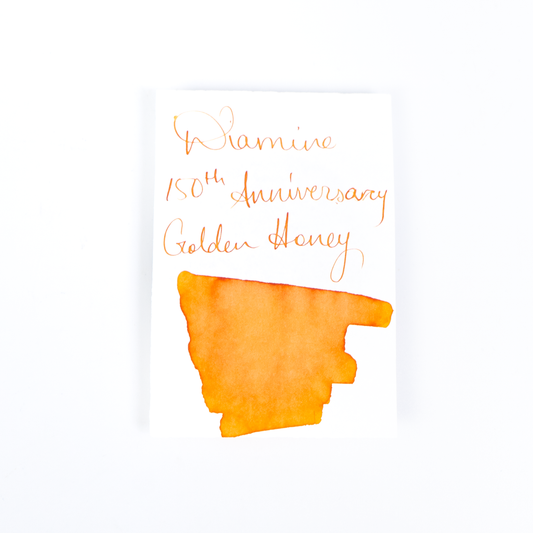 Diamine
150th Anniversary
Golden Honey